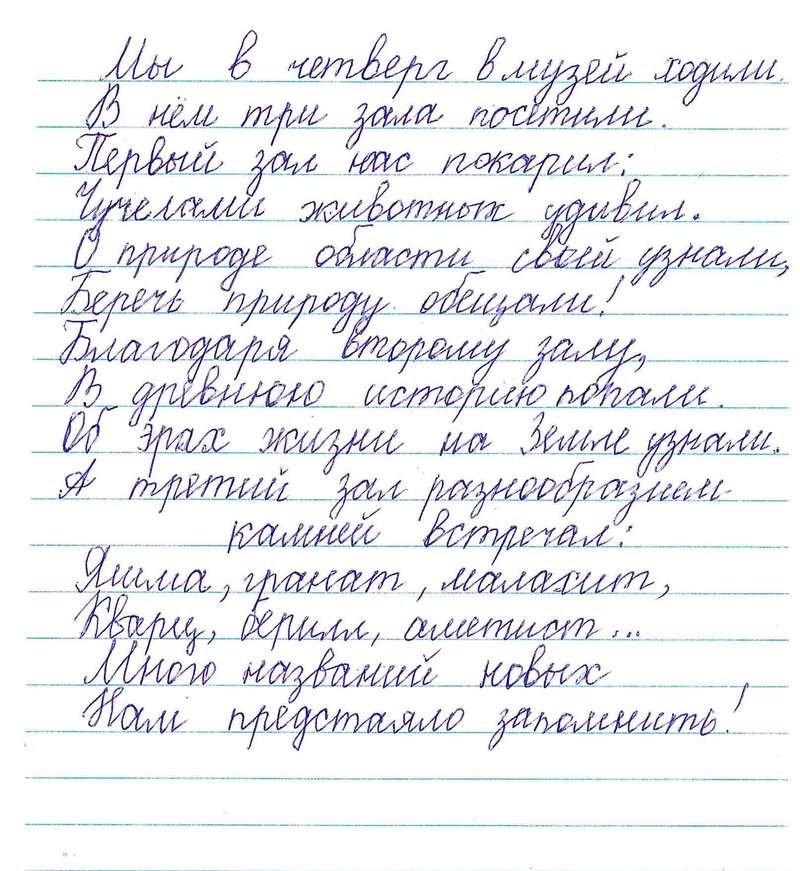 Мы в четверг в музей ходили.
В нём три зала посетили.
Первый зал нас покарил:
Чучелами животных удивил.
О природе области своей узнали,
Беречь природу обещали!
Благодаря второму залу,
В древнюю историю попали.
Об эрах жизни на Земле узнали.
А третий зал разнообразием
камней встречал:
Яшма, гранат, малахит,
Кварц, берилл, аметист...
Много названий новых
Нам предстаяло запомнить!